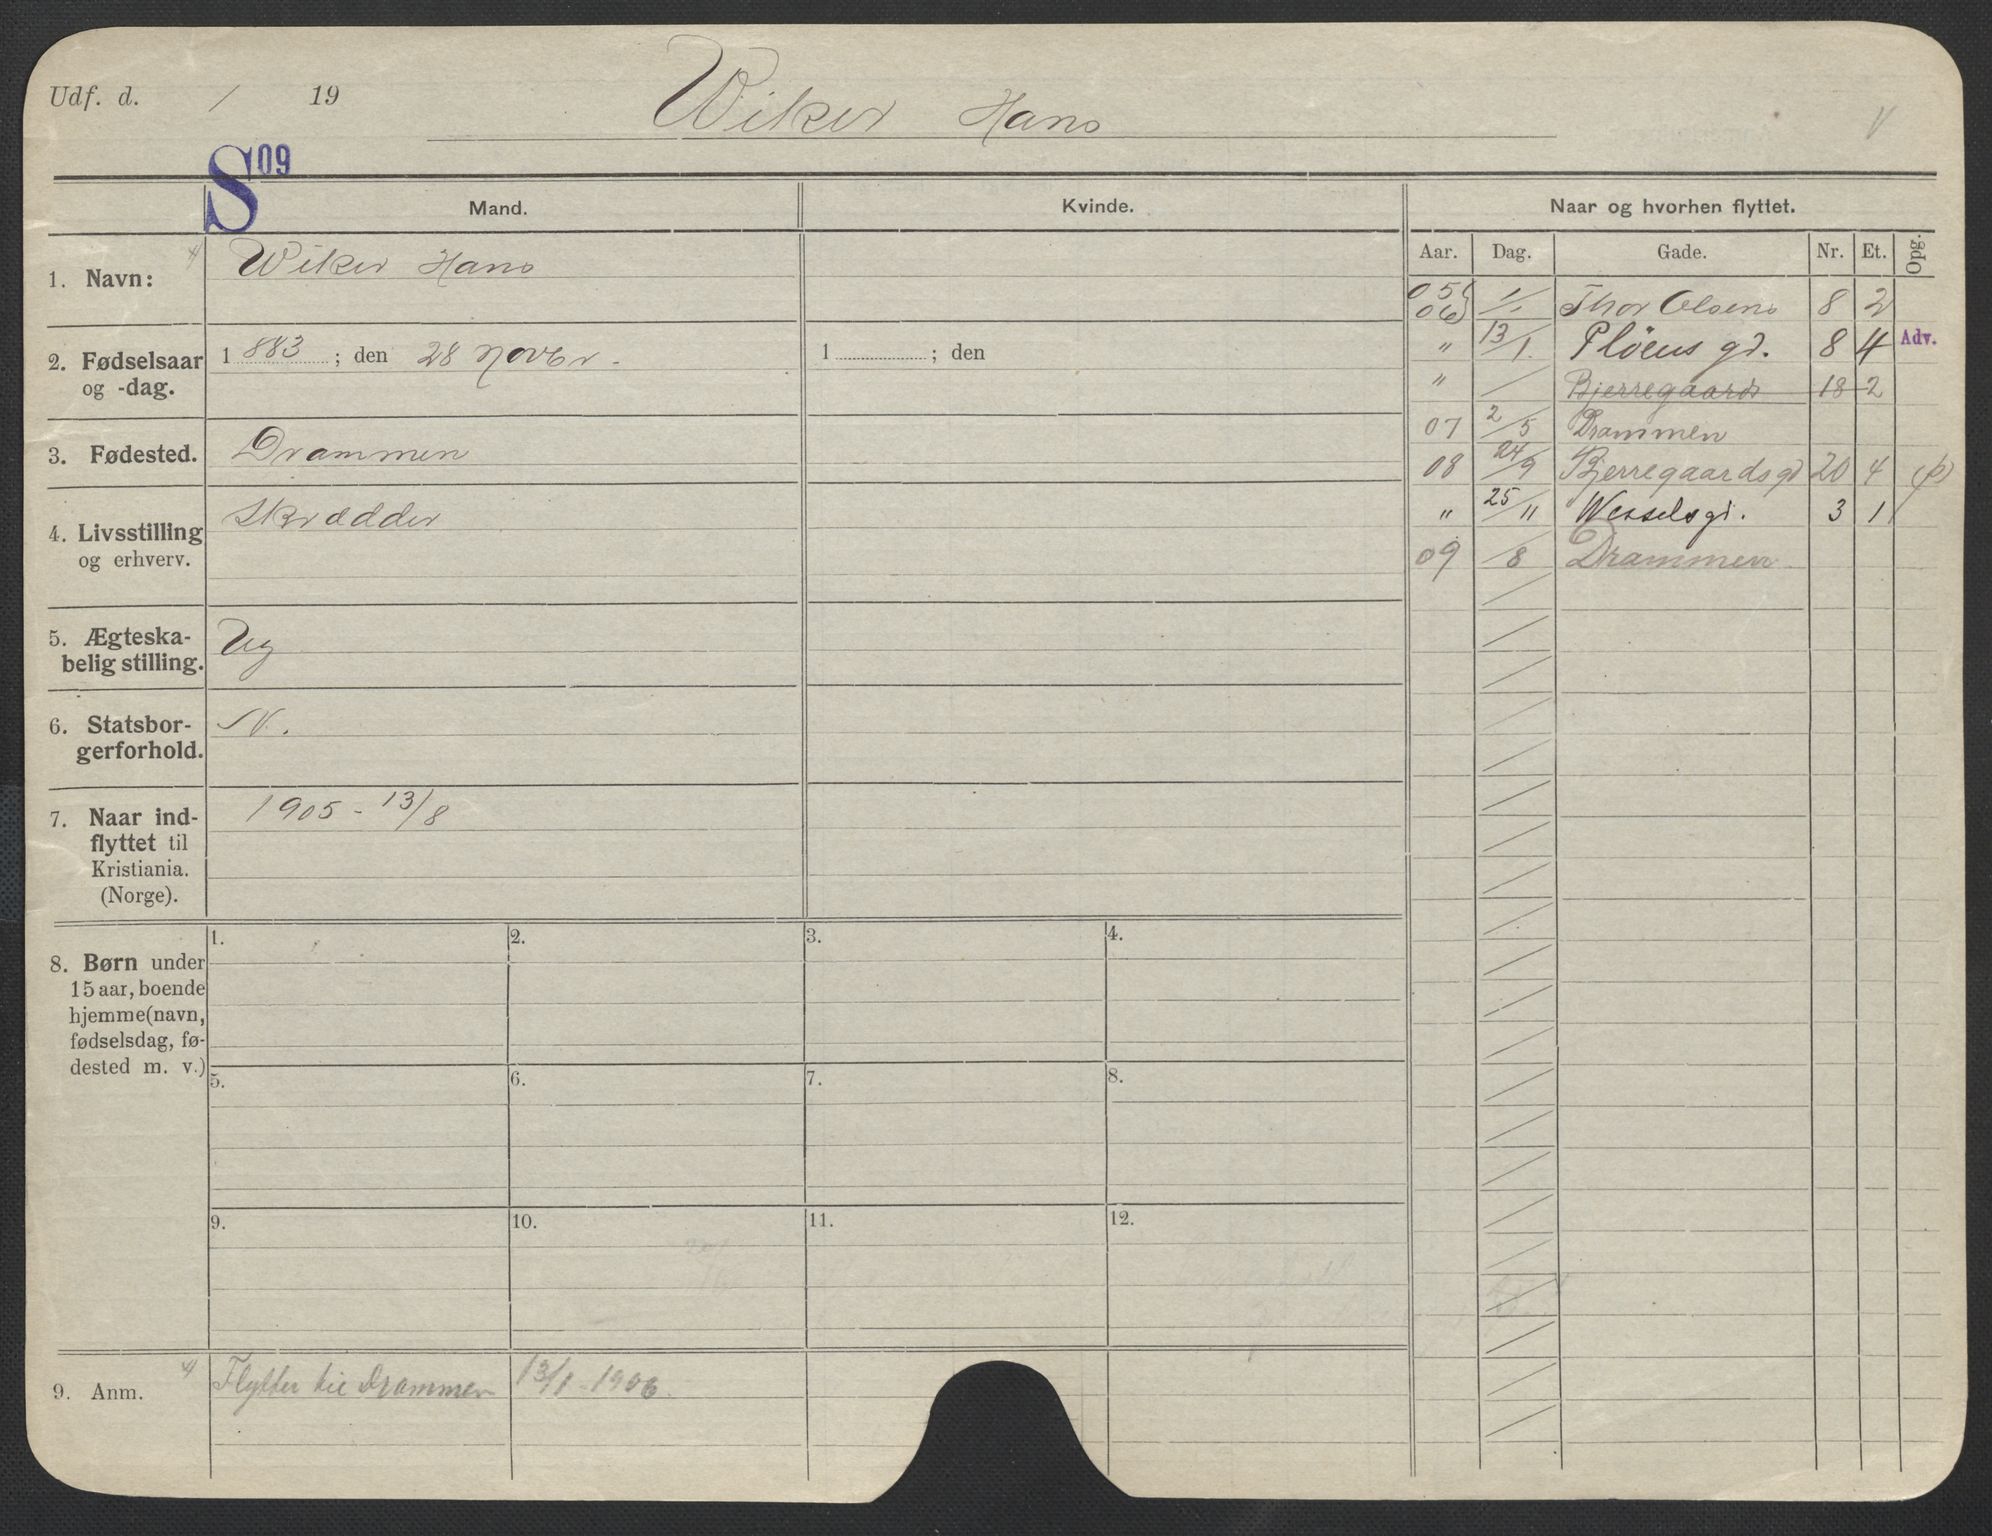 Udf. d. / 19
Wiker Hans
S09
Mand.
Kvinde.
Naar og hvorhen flyttet.
Aar. Dag. Gade. Nr. Et. Opg.
1. Navn:
Wiker Hans
2. Fødselsaar
og -dag.
1 883 ; den 28 Novbr.
1 ; den
3. Fødested.
Drammen
4. Livsstilling
og erhverv.
Skrædder
5. Ægteska-
belig stilling.
Ug
6. Statsbor-
gerforhold.
N.
7. Naar ind-
flyttet til
Kristiania.
(Norge).
1905 - 13/8
05 1/1 Thor Olsens 8 2
06
" 13/1. Pløens gd. 8 4 Adv.
" / Bjerregaards 18 2
07 2/5 Drammen
08 24/9 Bjerregaardsgd 20 4 (p)
" 25/11 Wesselsgd. 3 1
09 /8 Drammen
8. Børn under
15 aar, boende
hjemme (navn,
fødselsdag, fø-
dested m. v.)
1. 2. 3. 4.
5. 6. 7. 8.
9. 10. 11. 12.
9. Anm.
Flytter til Drammen 13/1 - 1906.